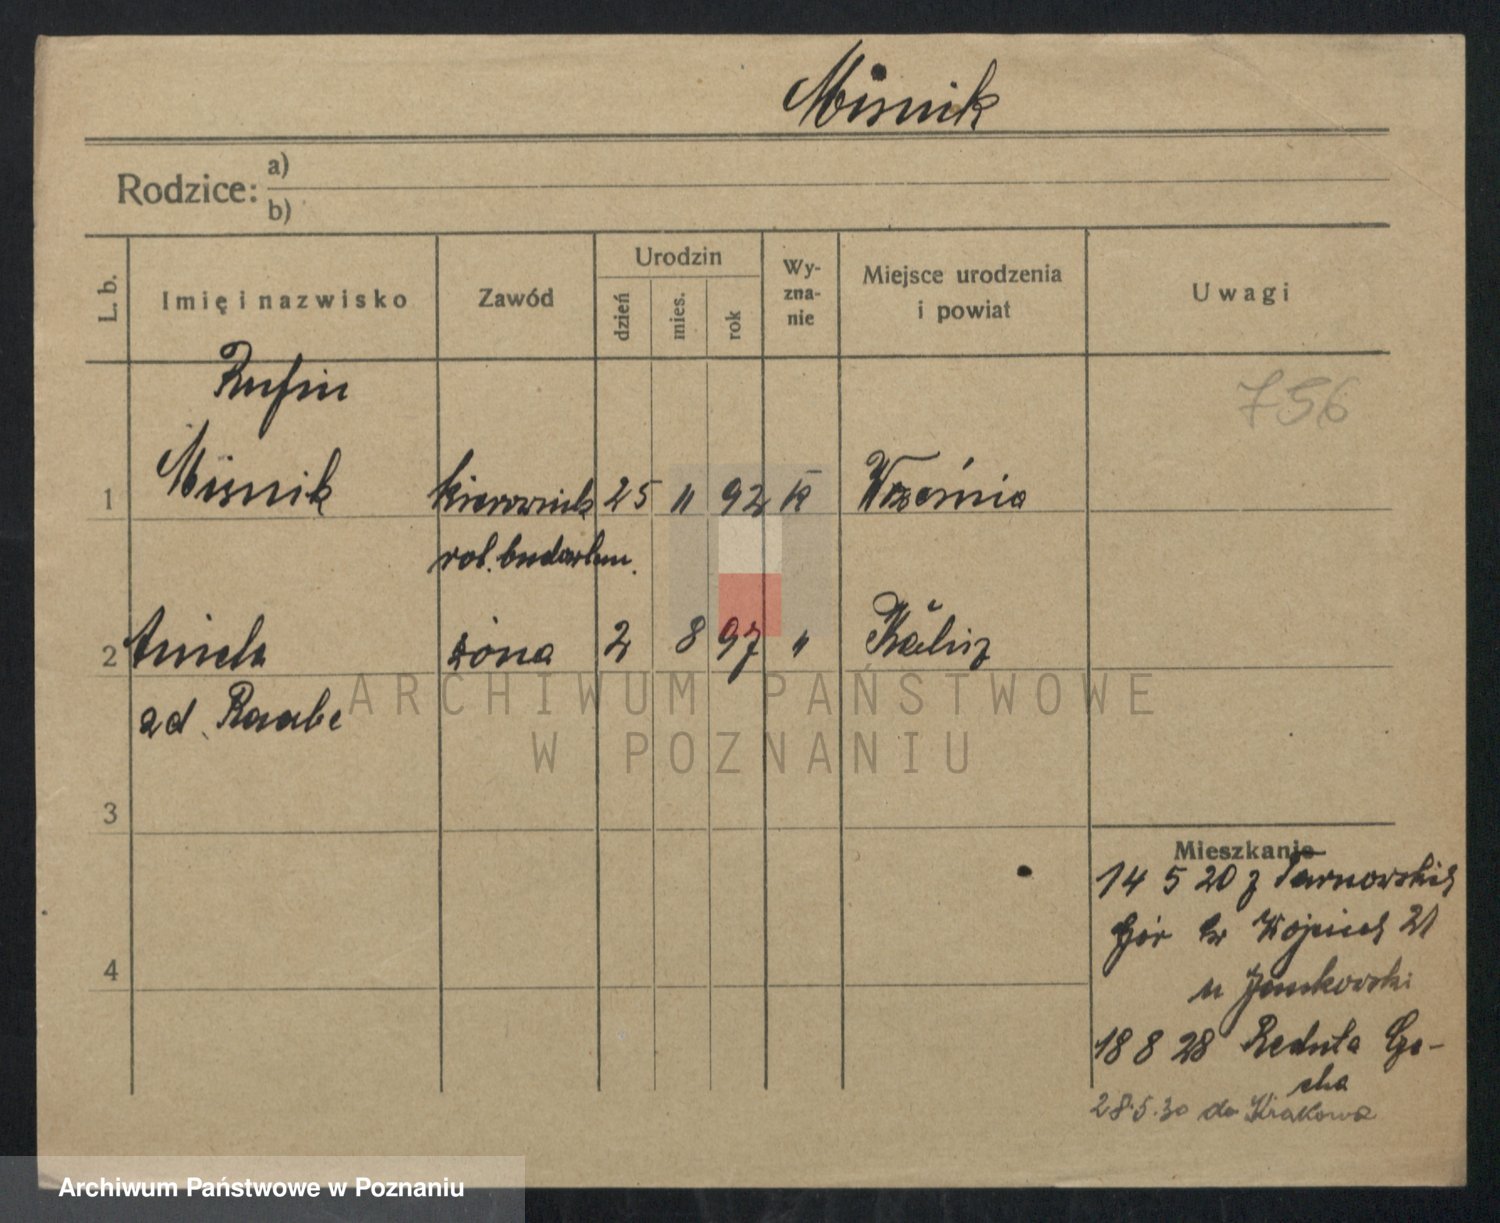 Misnik
Rodzice: a)
b)
L. b.
Imię i nazwisko
Zawód
Urodzin
dzień
mies.
rok
Wy-
zna-
nie
Miejsce urodzenia
i powiat
Uwagi
756
Rufin
1 Misnik kierownik 25 11 92 k Września
rob. budowlan.
2 Aniela żona 2 8 97 " Kalisz
zd. Raabe
3
4
Mieszkanie
14 5 20 z Tarnowskich
Gór św Wojciech 21
u Jankowski
18 8 28 Reduta Go-
cha
28.5.30 do Krakowa
ARCHIWUM PAŃSTWOWE
W POZNANIU
Archiwum Państwowe w Poznaniu